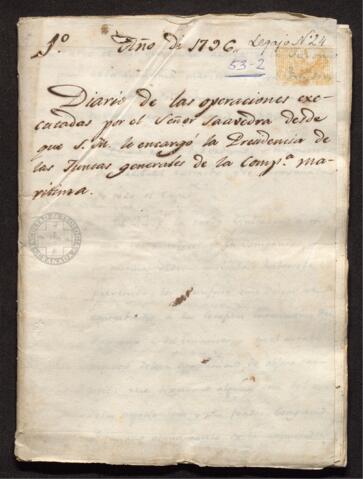 1º. Año de 1796. Legajo Nº 24
53-2
Diario de las operaciones exe-
cutadas por el Señor Saavedra desde
que S. M. le encargó la Presidencia de
las Juntas generales de la Compª. ma-
ritima.